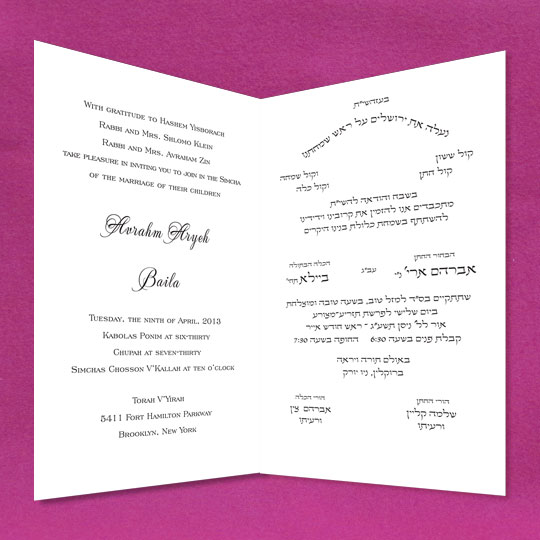 With gratitude to Hashem Yisborach
Rabbi and Mrs. Shlomo Klein
Rabbi and Mrs. Avraham Zin
take pleasure in inviting you to join in the Simcha
of the marriage of their children
Avrahm Aryeh
Baila
Tuesday, the ninth of April, 2013
Kabolas Ponim at six-thirty
Chupah at seven-thirty
Simchas Chosson V'Kallah at ten o'clock
Torah V'Yirah
5411 Fort Hamilton Parkway
Brooklyn, New York
בעזהשי"ת
נעלה את ירושלים על ראש שמחתנו
קול ששון וקול שמחה
קול חתן וקול כלה
בשבח והודאה להשי"ת
מתכבדים אנו להזמין את קרובינו וידידינו
להשתתף בשמחת כלולת בנינו היקרים
הבחור החתן הכלה הבתולה
אברהם ארי' ני' עב"ג ביילא תחי'
שתתקיים בס"ד למזל טוב, בשעה טובה ומוצלחת
ביום שלישי לפרשת תזריע־מצורע
אור לל' ניסן תשע"ג - ראש חודש אייר
קבלת פנים בשעה 6:30 החופה בשעה 7:30
באולם תורה ויראה
ברוקלין, ניו יורק
הורי החתן הורי הכלה
שלמה קליין אברהם צין
ורעיתו ורעיתו